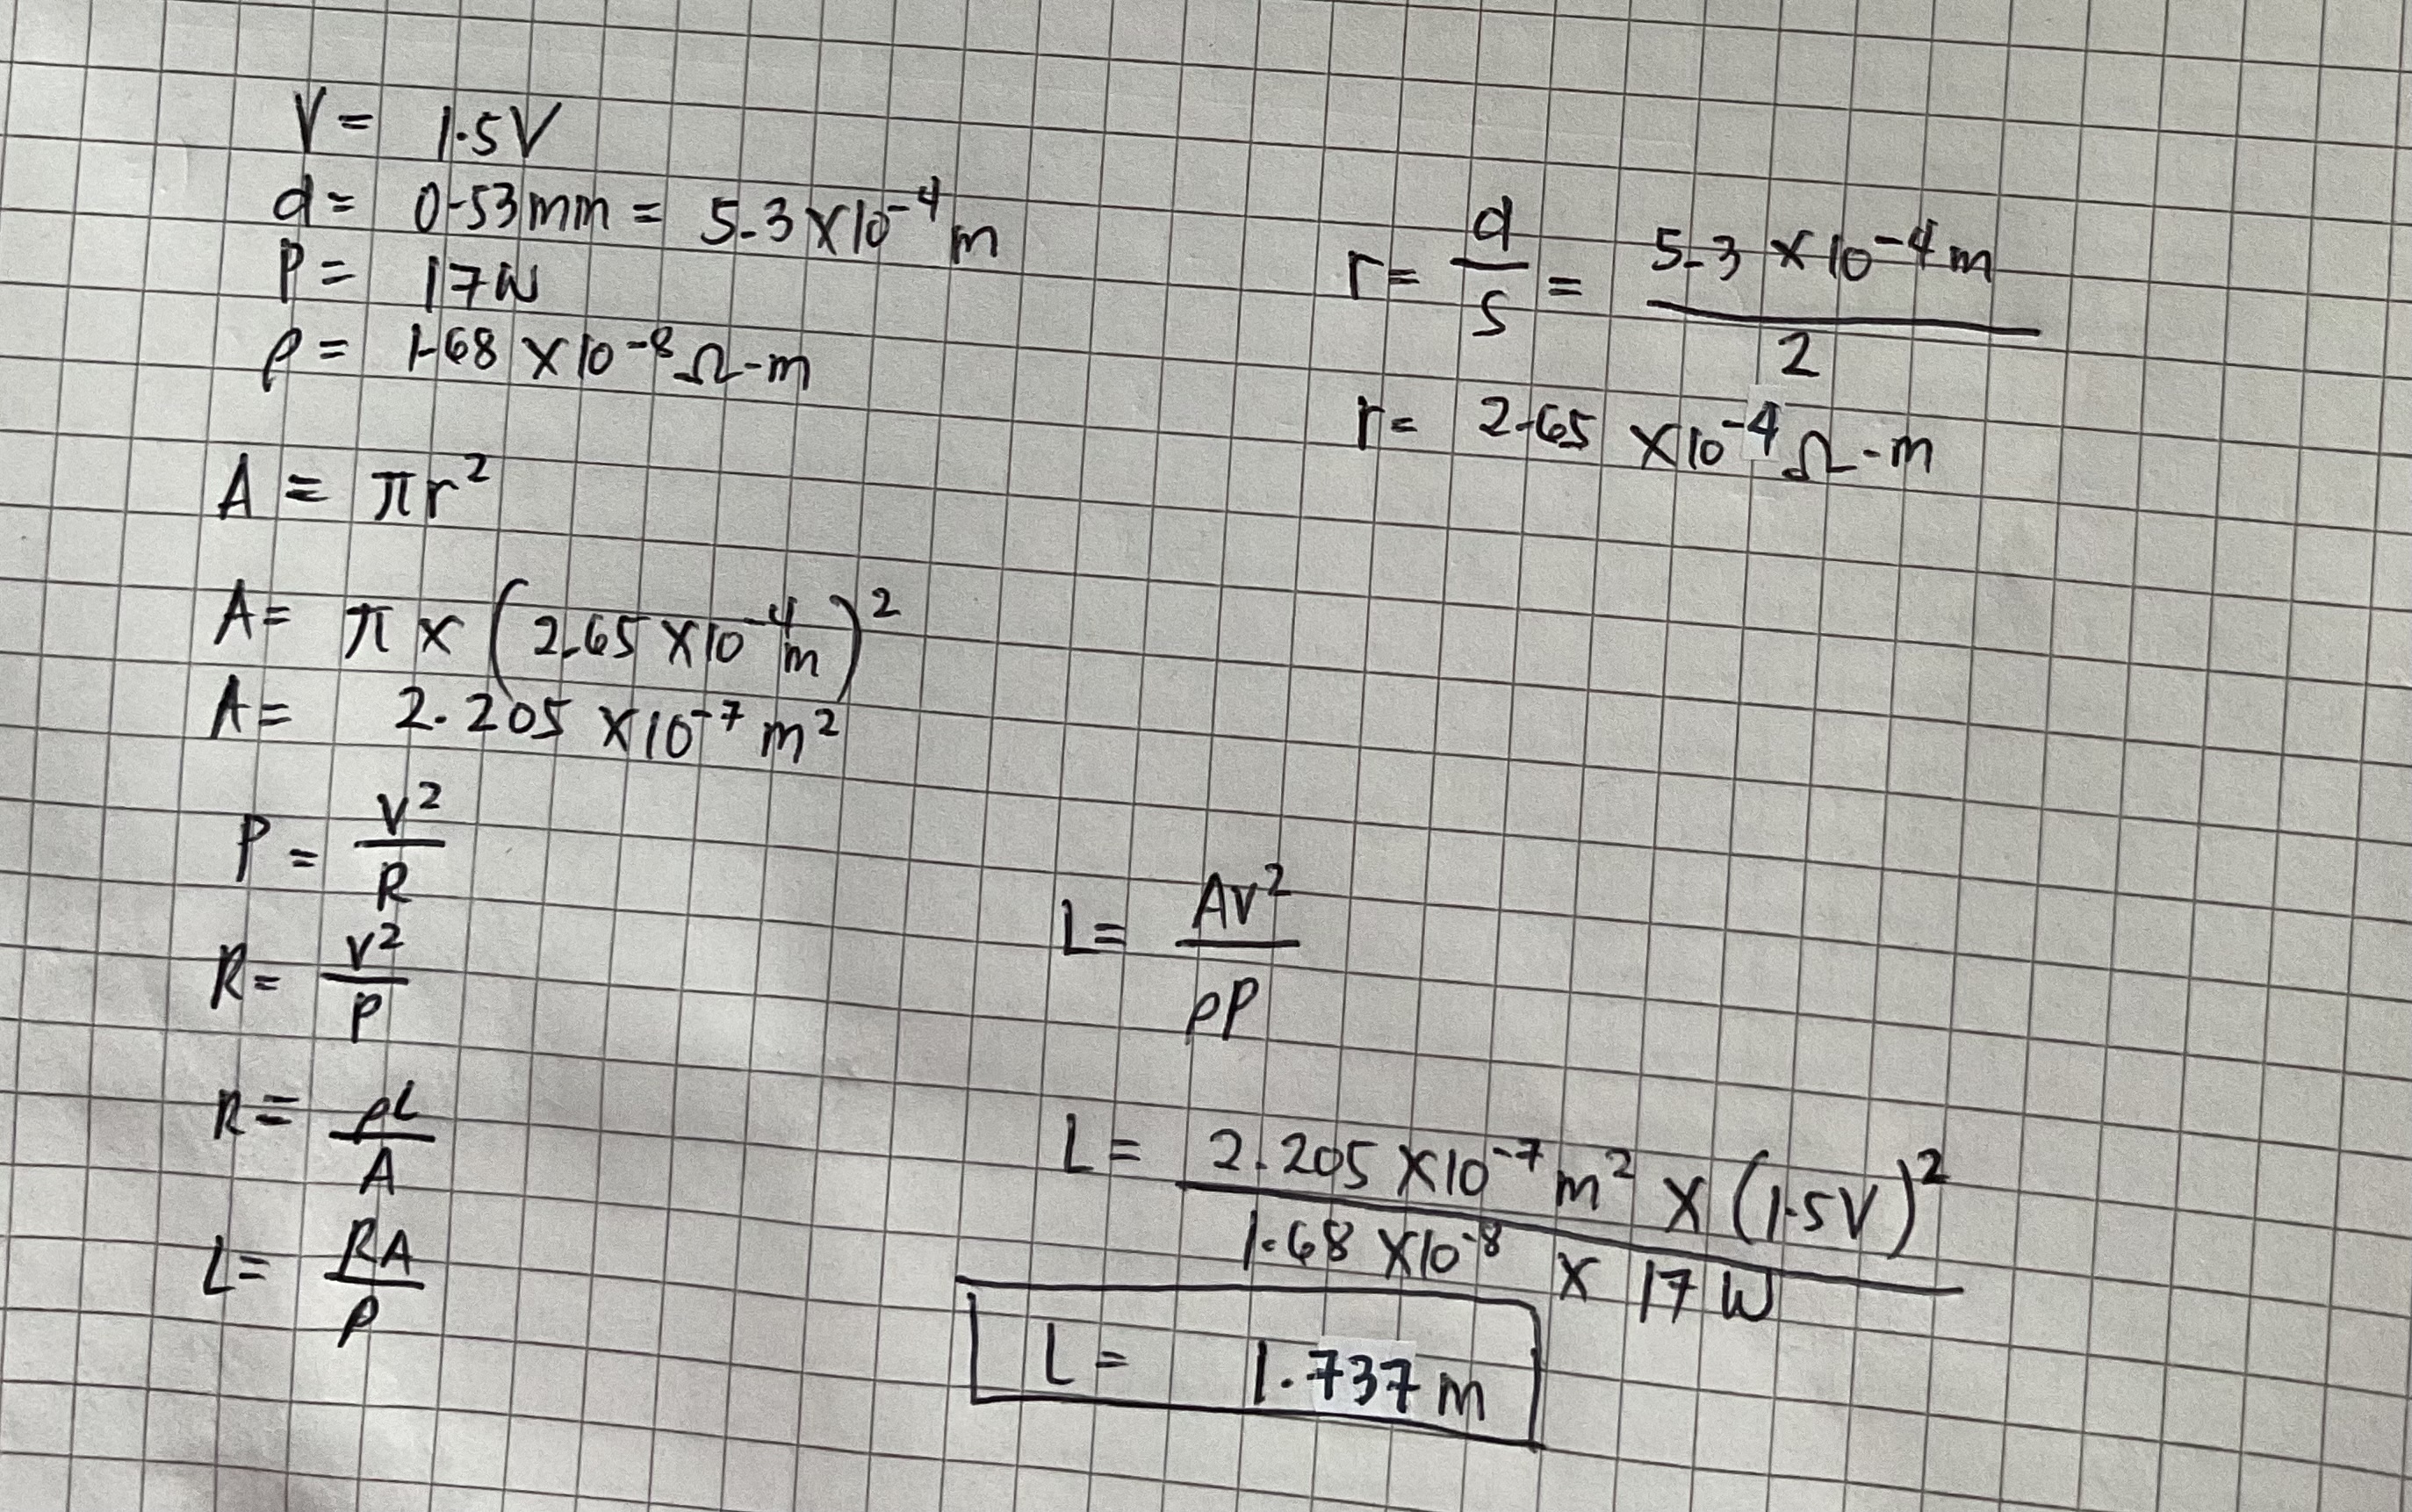 V = 1.5V
d = 0.53mm = 5.3 × 10⁻⁴ m
P = 17W
ρ = 1.68 × 10⁻⁸ Ω-m
r = d/s = 5.3 × 10⁻⁴ m / 2
r = 2.65 × 10⁻⁴ Ω-m
A = πr²
A = π × (2.65 × 10⁻⁴ m)²
A = 2.205 × 10⁻⁷ m²
P = V²/R
R = V²/P
R = ρL/A
L = RA/ρ
L = AV²/ρP
L = 2.205 × 10⁻⁷ m² × (1.5V)² / 1.68 × 10⁻⁸ × 17W
L = 1.737 m